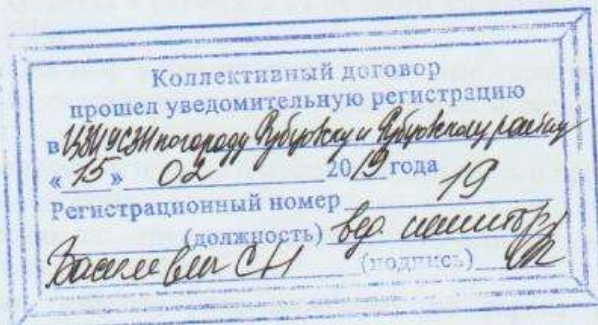 Коллективный договор
прошел уведомительную регистрацию
в УСЗН по городу Рубцовску и Рубцовскому району
« 15 » 02 2019 года
Регистрационный номер 19
(должность) вед. инспектор
Василевич СН (подпись)